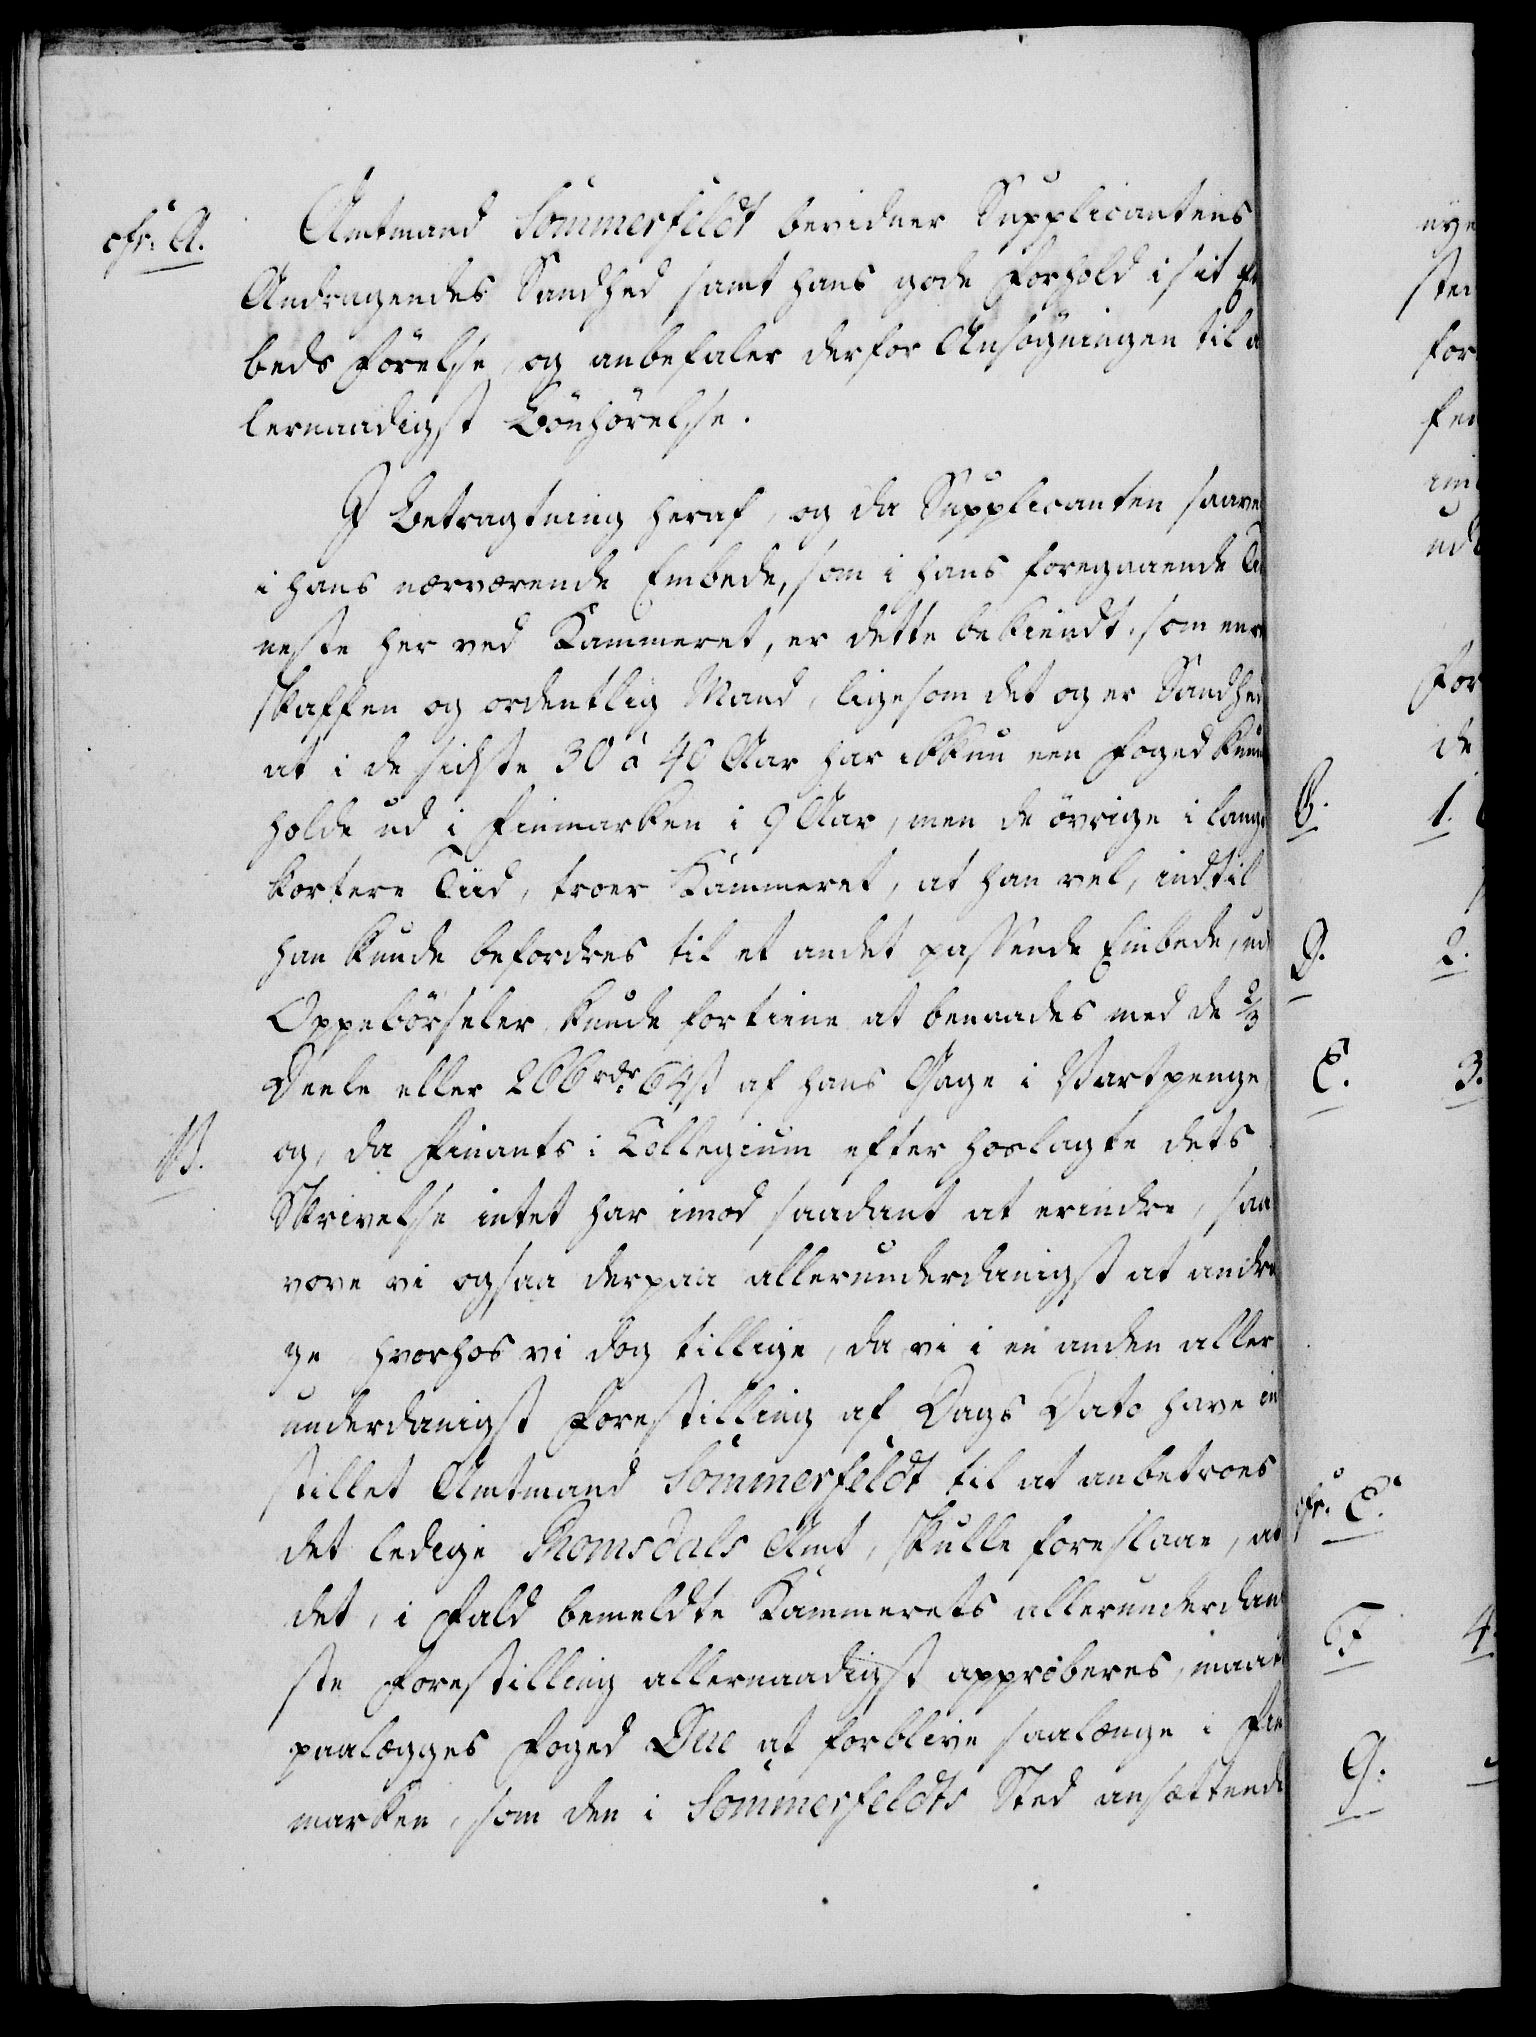 cfr: A.
Amtmand Sommerfeldt bevidner Supplicantens
Andragendes Sandhed samt hans gode Forhold i sit E
beds Förelse, og anbefaler derfor Ansögningen til a
lernaadigst Bönhörelse.
I Betragtning heraf, og da Supplicanten saave
i hans nærværende Embede, som i hans foregaaende Ti
neste her ved Kammeret, er dette bekiendt, som en re
skaffen og ordentlig Mand, ligesom det og er Sandhed
at i de sidste 30 à 40 Aar har ikkun een Foged kun
holde ud i Finmarken i 9 Aar, men de övrige i lang
kortere Tiid, troer Kammeret, at han vel, indtil
han kunde befordres til et andet passende Embede, ud
Oppebörseler, kunde fortiene at benaades med de 2/3
Deele eller 266 rdr 64 s af hans Gage i Vartpenge
B.
og, da Finants-Collegium efter hoslagte dets
Skrivelse intet har imod saadant at erindre, saa
vove vi ogsaa derpaa allerunderdanigst at andra
ge, hvorhos vi dog tillige, da vi i en anden aller
underdanigst Forestilling af Dags Dato have in
stillet Amtmand Sommerfeldt til at anbetroes
det ledige Romsdals Amt, skulle foreslaae, at
det, i Fald bemeldte Kammerets allerunderdan
ste Forestilling allernaadigst approberes, maat
paalægges Foged Due at forblive saalænge i Fin
marken, som den i Sommerfeldts Sted ansættende
nye
sted
for
ud
For
de
B. 1.
D. 2.
E. 3.
cfr. E.
F 4.
G.